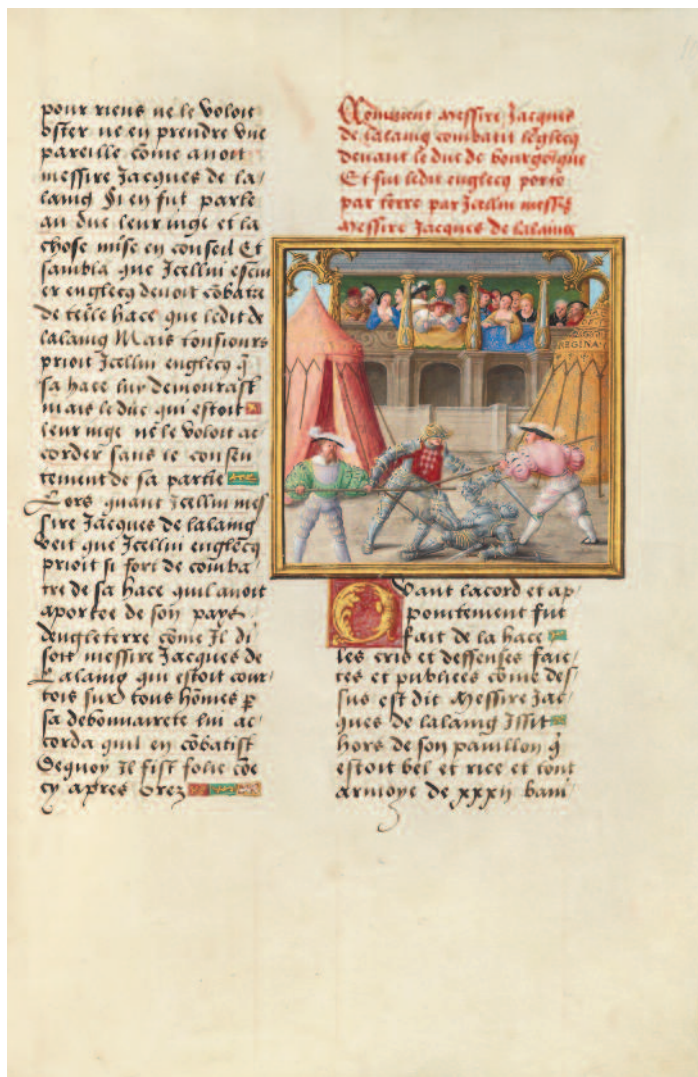 pour riens ne le voloit
oster ne en prendre une
pareille côme avoit
messire Jacques de la/
laing Si en fut parle
au duc leur iuge et la
chose mise en conseil Et
sambla que Icellui escui
er englecq devoit côbatre
de telle hace que ledit de
lalaing Mais tousiours
prioit Icellui englecq q̄
sa hace luy demourast
mais le duc qui estoit
leur iuge ne le voloit ac
corder sans le consen
tement de sa partie
Lors quant Icellui mes
sire Jacques de lalaing
veit que Icellui englecq
prioit si fort de comba/
tre de sa hace quil avoit
aportee de son pays
dengleterre côme Il di
soit messire Jacques de
Lalaing qui estoit cour/
tois sur tous hômes p̄
sa debonnairete lui ac/
corda quil en côbatist
Dequoy Il fist folie côe
cy apres orez
Comment messire Jacques
de lalaing combatit lenglecq
devant le duc de bourgoigne
Et fut ledit englecq porte
par terre par Icellui messr̄e
messire Jacques de lalaing
REGINA
Quant lacord et ap/
pointement fut
fait de la hace
les cris et deffenses faic/
tes et publiees côme des/
sus est dit Messire Jac/
ques de lalaing Issit
hors de son pavillon q̄
estoit bel et rice et tout
armoye de xxxij bani/